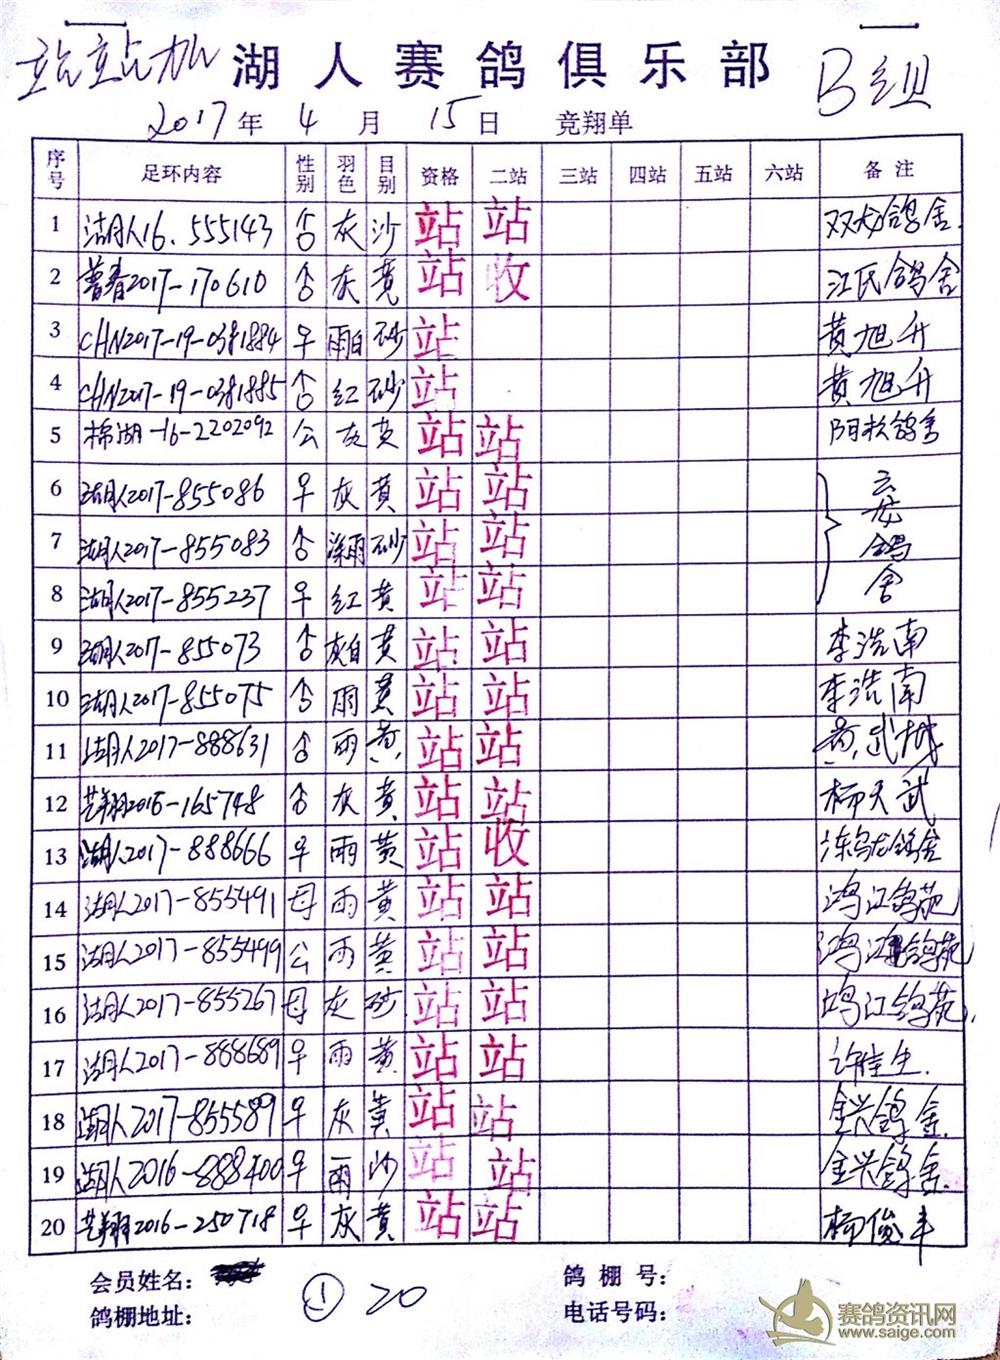 站站加 湖人赛鸽俱乐部 B组
2017年 4月 15日 竞翔单
序号 足环内容 性别 羽色 目别 资格 二站 三站 四站 五站 六站 备注
1 湖人16.555143 ♂ 灰 沙 站 站 双龙鸽舍.
2 普春2017-170610 ♂ 灰 黄 站 收 江氏鸽舍
3 CHN2017-19-0381884 ♀ 雨白 砂 站 黄旭升
4 CHN2017-19-0381885 ♂ 红 砂 站 黄旭升
5 棉湖-16-2202092 公 灰 黄 站 站 鸽舍
6 湖人2017-855086 ♀ 灰 黄 站 站
7 湖人2017-855083 ♂ 深雨 砂 站 站 云龙鸽舍
8 湖人2017-855237 ♀ 红 黄 站 站
9 湖人2017-855073 ♂ 灰白 黄 站 站 李浩南
10 湖人2017-855075 ♂ 雨 黄 站 站 李浩南
11 湖人2017-888631 ♂ 雨 黄 站 站 黄武城
12 艺翔2016-165748 ♂ 灰 黄 站 站 杨天武
13 湖人2017-888666 ♀ 雨 黄 站 收 鸽舍
14 湖人2017-855491 母 雨 黄 站 站 鸿江鸽苑
15 湖人2017-855499 公 雨 黄 站 站 鸿江鸽苑
16 湖人2017-855267 母 灰 砂 站 站 鸿江鸽苑.
17 湖人2017-888689 ♀ 雨 黄 站 站 许佳生.
18 湖人2017-855589 ♀ 灰 黄 站 站 金兴鸽舍.
19 湖人2016-888400 ♀ 雨 沙 站 站 金兴鸽舍.
20 艺翔2016-250718 ♀ 灰 黄 站 站 杨俊丰
会员姓名: 鸽棚号:
鸽棚地址: ① 20 电话号码:
赛鸽资讯网
www.saige.com